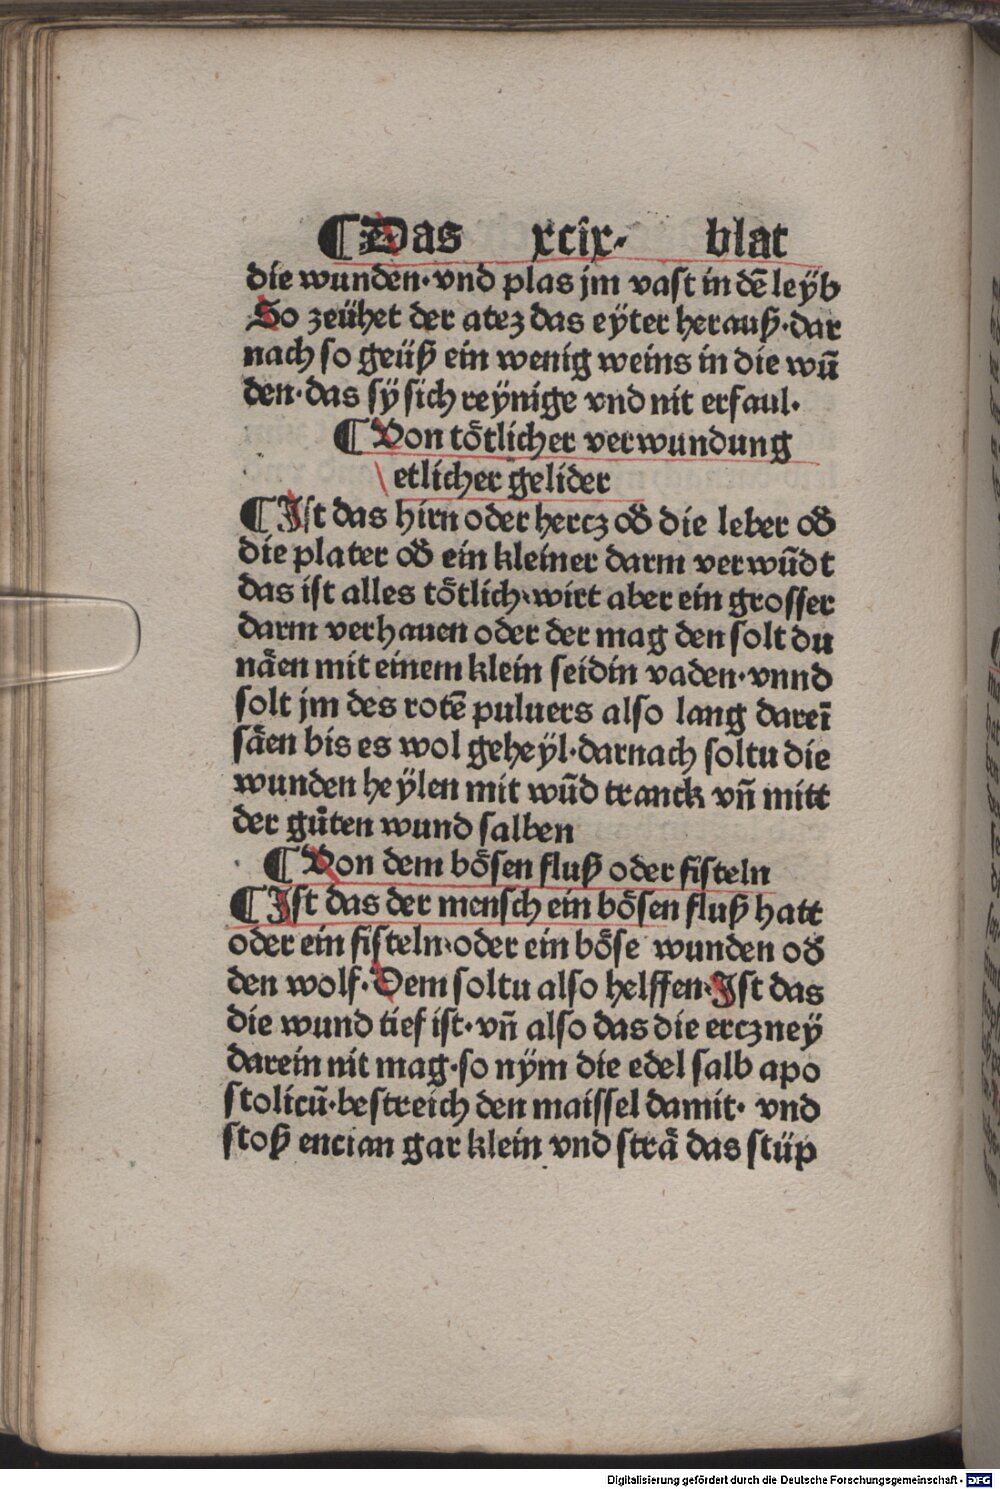 ¶ Das xcix· blat
die wunden·vnd plas jm vast in dē leÿb
So zeühet der atez das eÿter herauß·dar
nach so geüß ein wenig weins in die wū
den·das sÿ sich reÿnige vnd nit erfaul·
¶ Von tötlicher verwundung
etlicher gelider
¶ Ist das hirn oder hercz od̕ die leber od̕
die plater od̕ ein kleiner darm verwūdt
das ist alles tötlich·wirt aber ein grosser
darm verhauen oder der mag den solt du
näen mit einem klein seidin vaden·vnnd
solt jm des rotē puluers also lang dareī
säen bis es wol geheÿl·darnach soltu die
wunden heÿlen mit wūd tranck vñ mitt
der gůten wund salben
¶ Von dem bösen fluß oder fisteln
¶ Ist das der mensch ein bösen fluß hatt
oder ein fisteln·oder ein böse wunden od̕
den wolf·Dem soltu also helffen·Ist das
die wund tief ist·vñ also das die ercznеÿ
darein nit mag·so nÿm die edel salb apo
stolicū·bestreich den maissel damit· vnd
stoß encian gar klein vnd strä das stüp
Digitalisierung gefördert durch die Deutsche Forschungsgemeinschaft - DFG